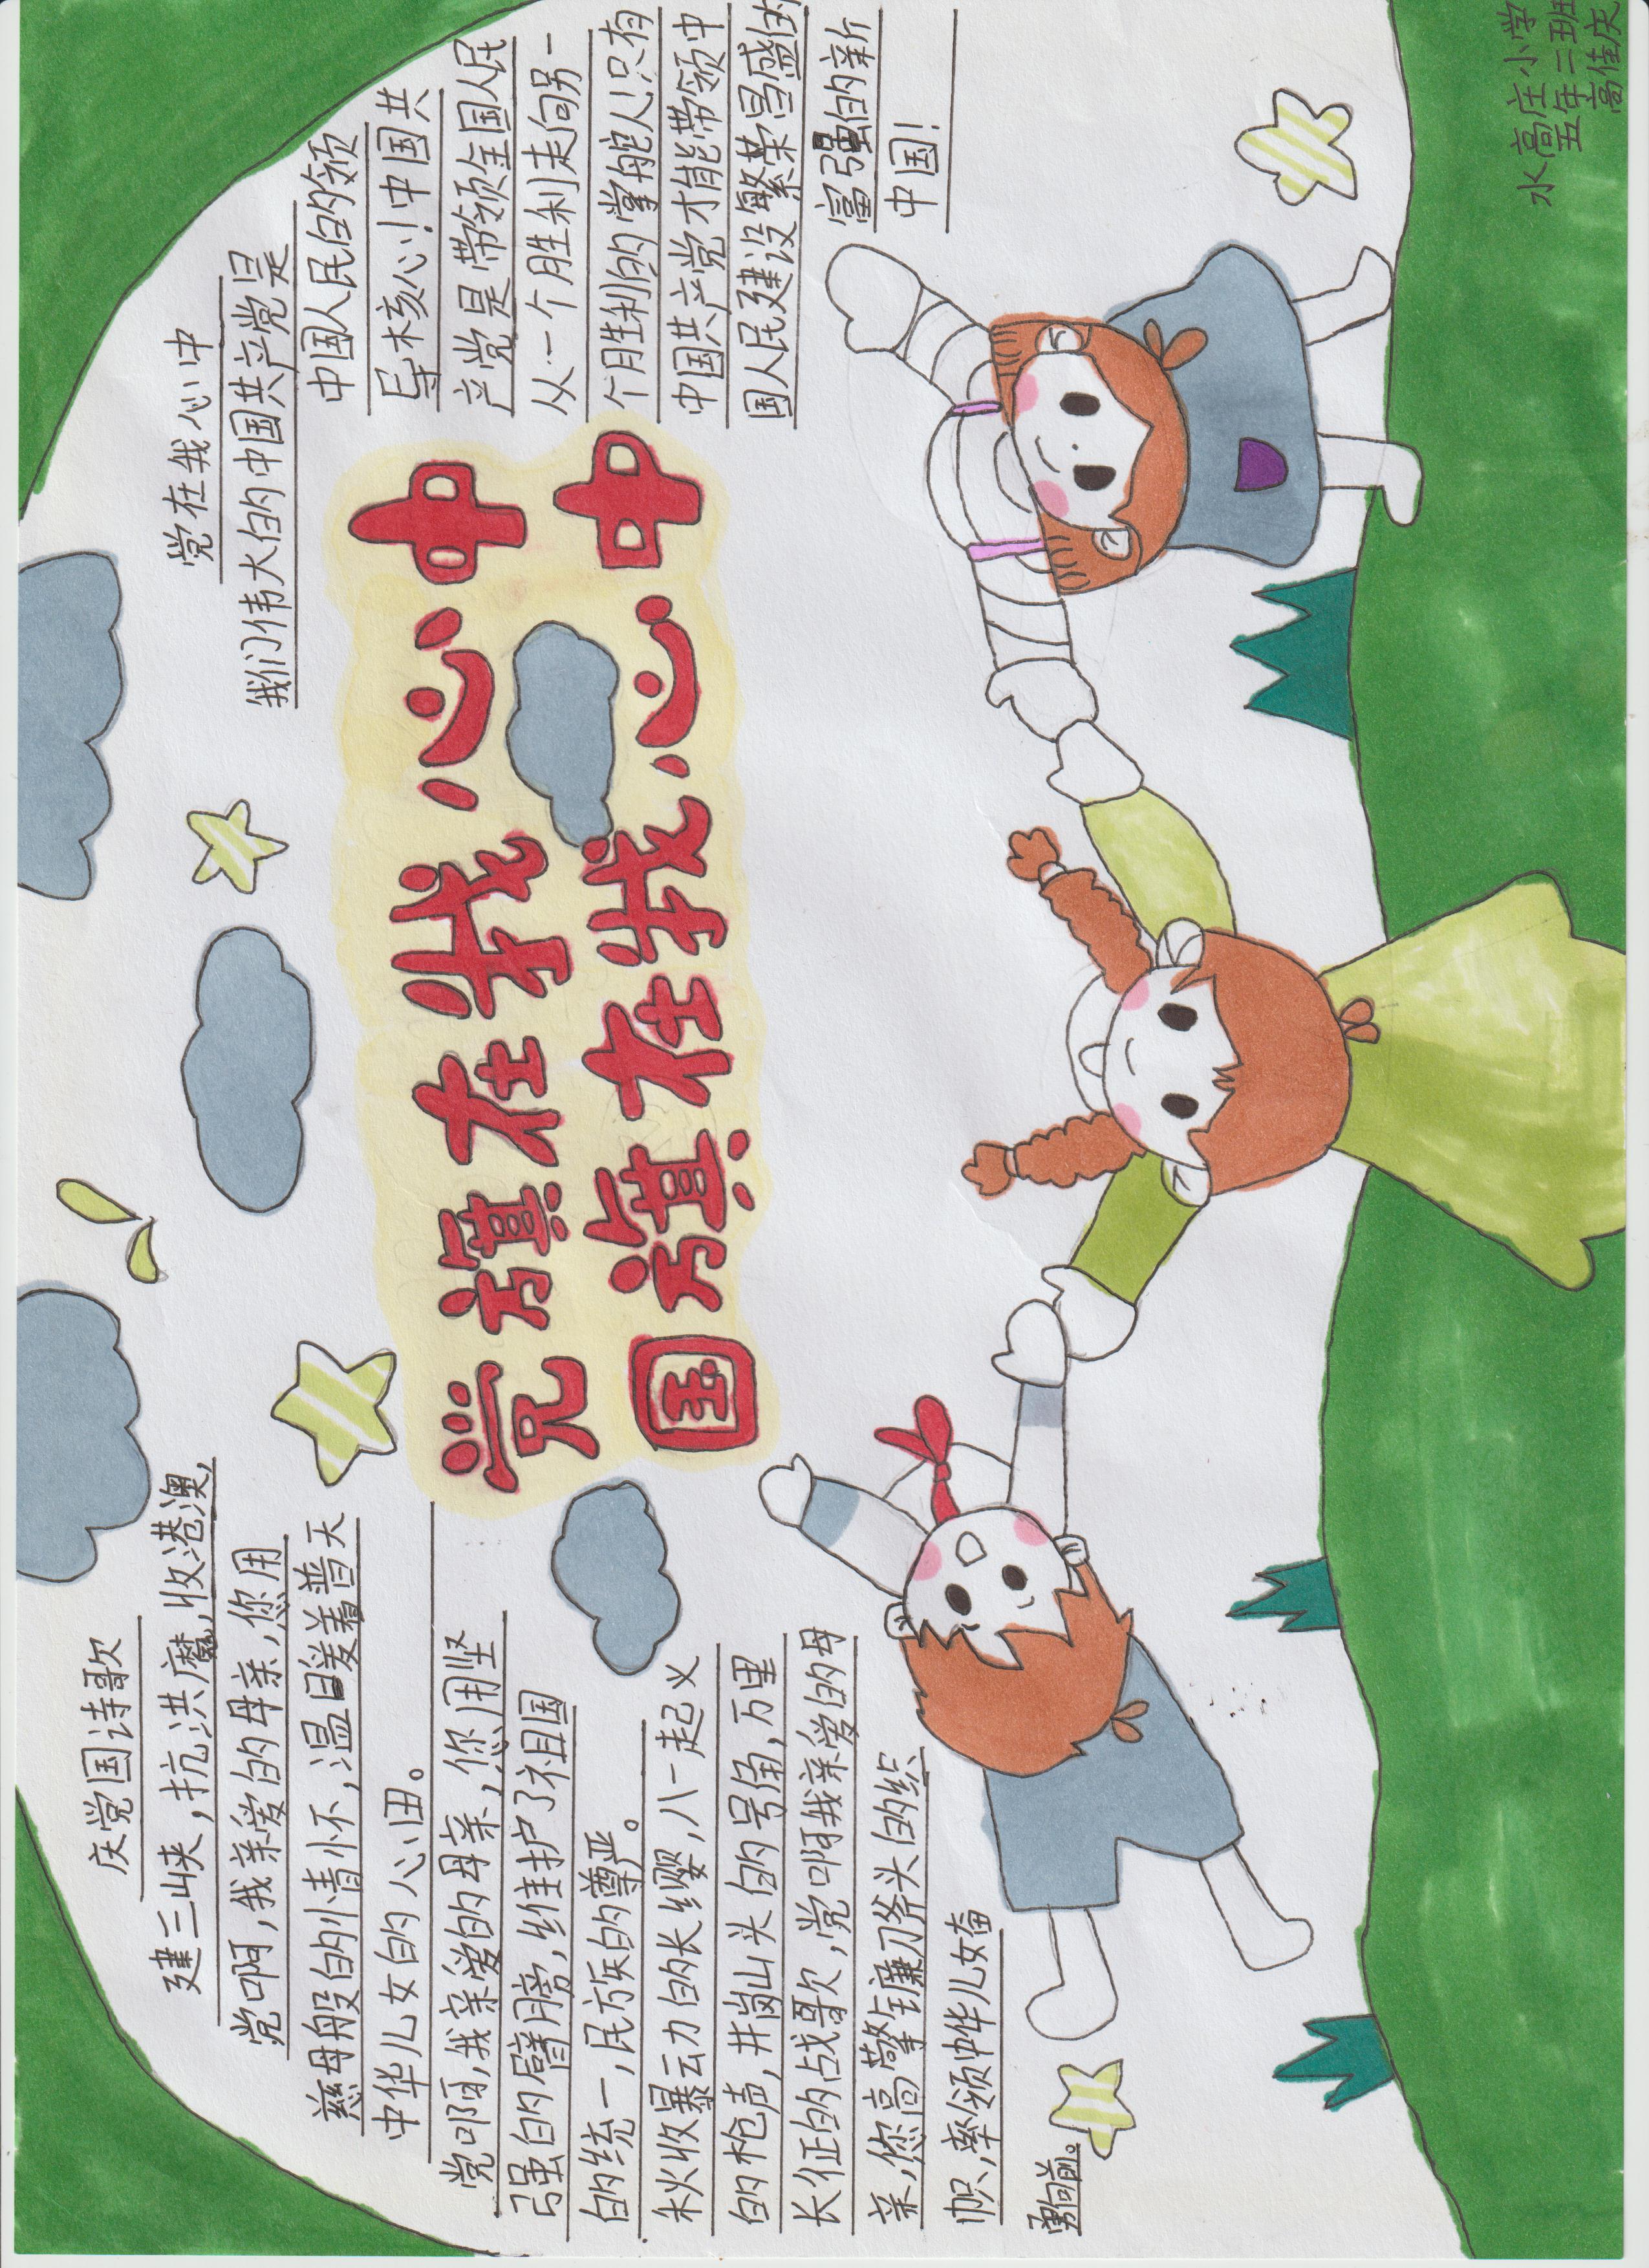 党旗在我心中
国旗在我心中
庆党国诗歌
建三峡，抗洪魔，收港澳，
党啊，我亲爱的母亲，您用
慈母般的情怀，温暖着普天
中华儿女的心田。
党啊，我亲爱的母亲，您用坚
强的臂膀，维护了祖国
的统一，民族的尊严。
秋收暴动的长缨，八一起义
的枪声，井岗山头的号角，万里
长征的战歌，党啊我亲爱的母
亲，您高擎镰刀斧头的织
帜，率领中华儿女奋
勇向前。
党在我心中
我们伟大的中国共产党是
中国人民的领
导核心！中国共
产党是带领全国人民
从一个胜利走向另一
个胜利的掌舵人！只有
中国共产党才能带领中
国人民建设繁荣昌盛的
富强的新
中国！
水高庄小学
五年二班
高佳庆